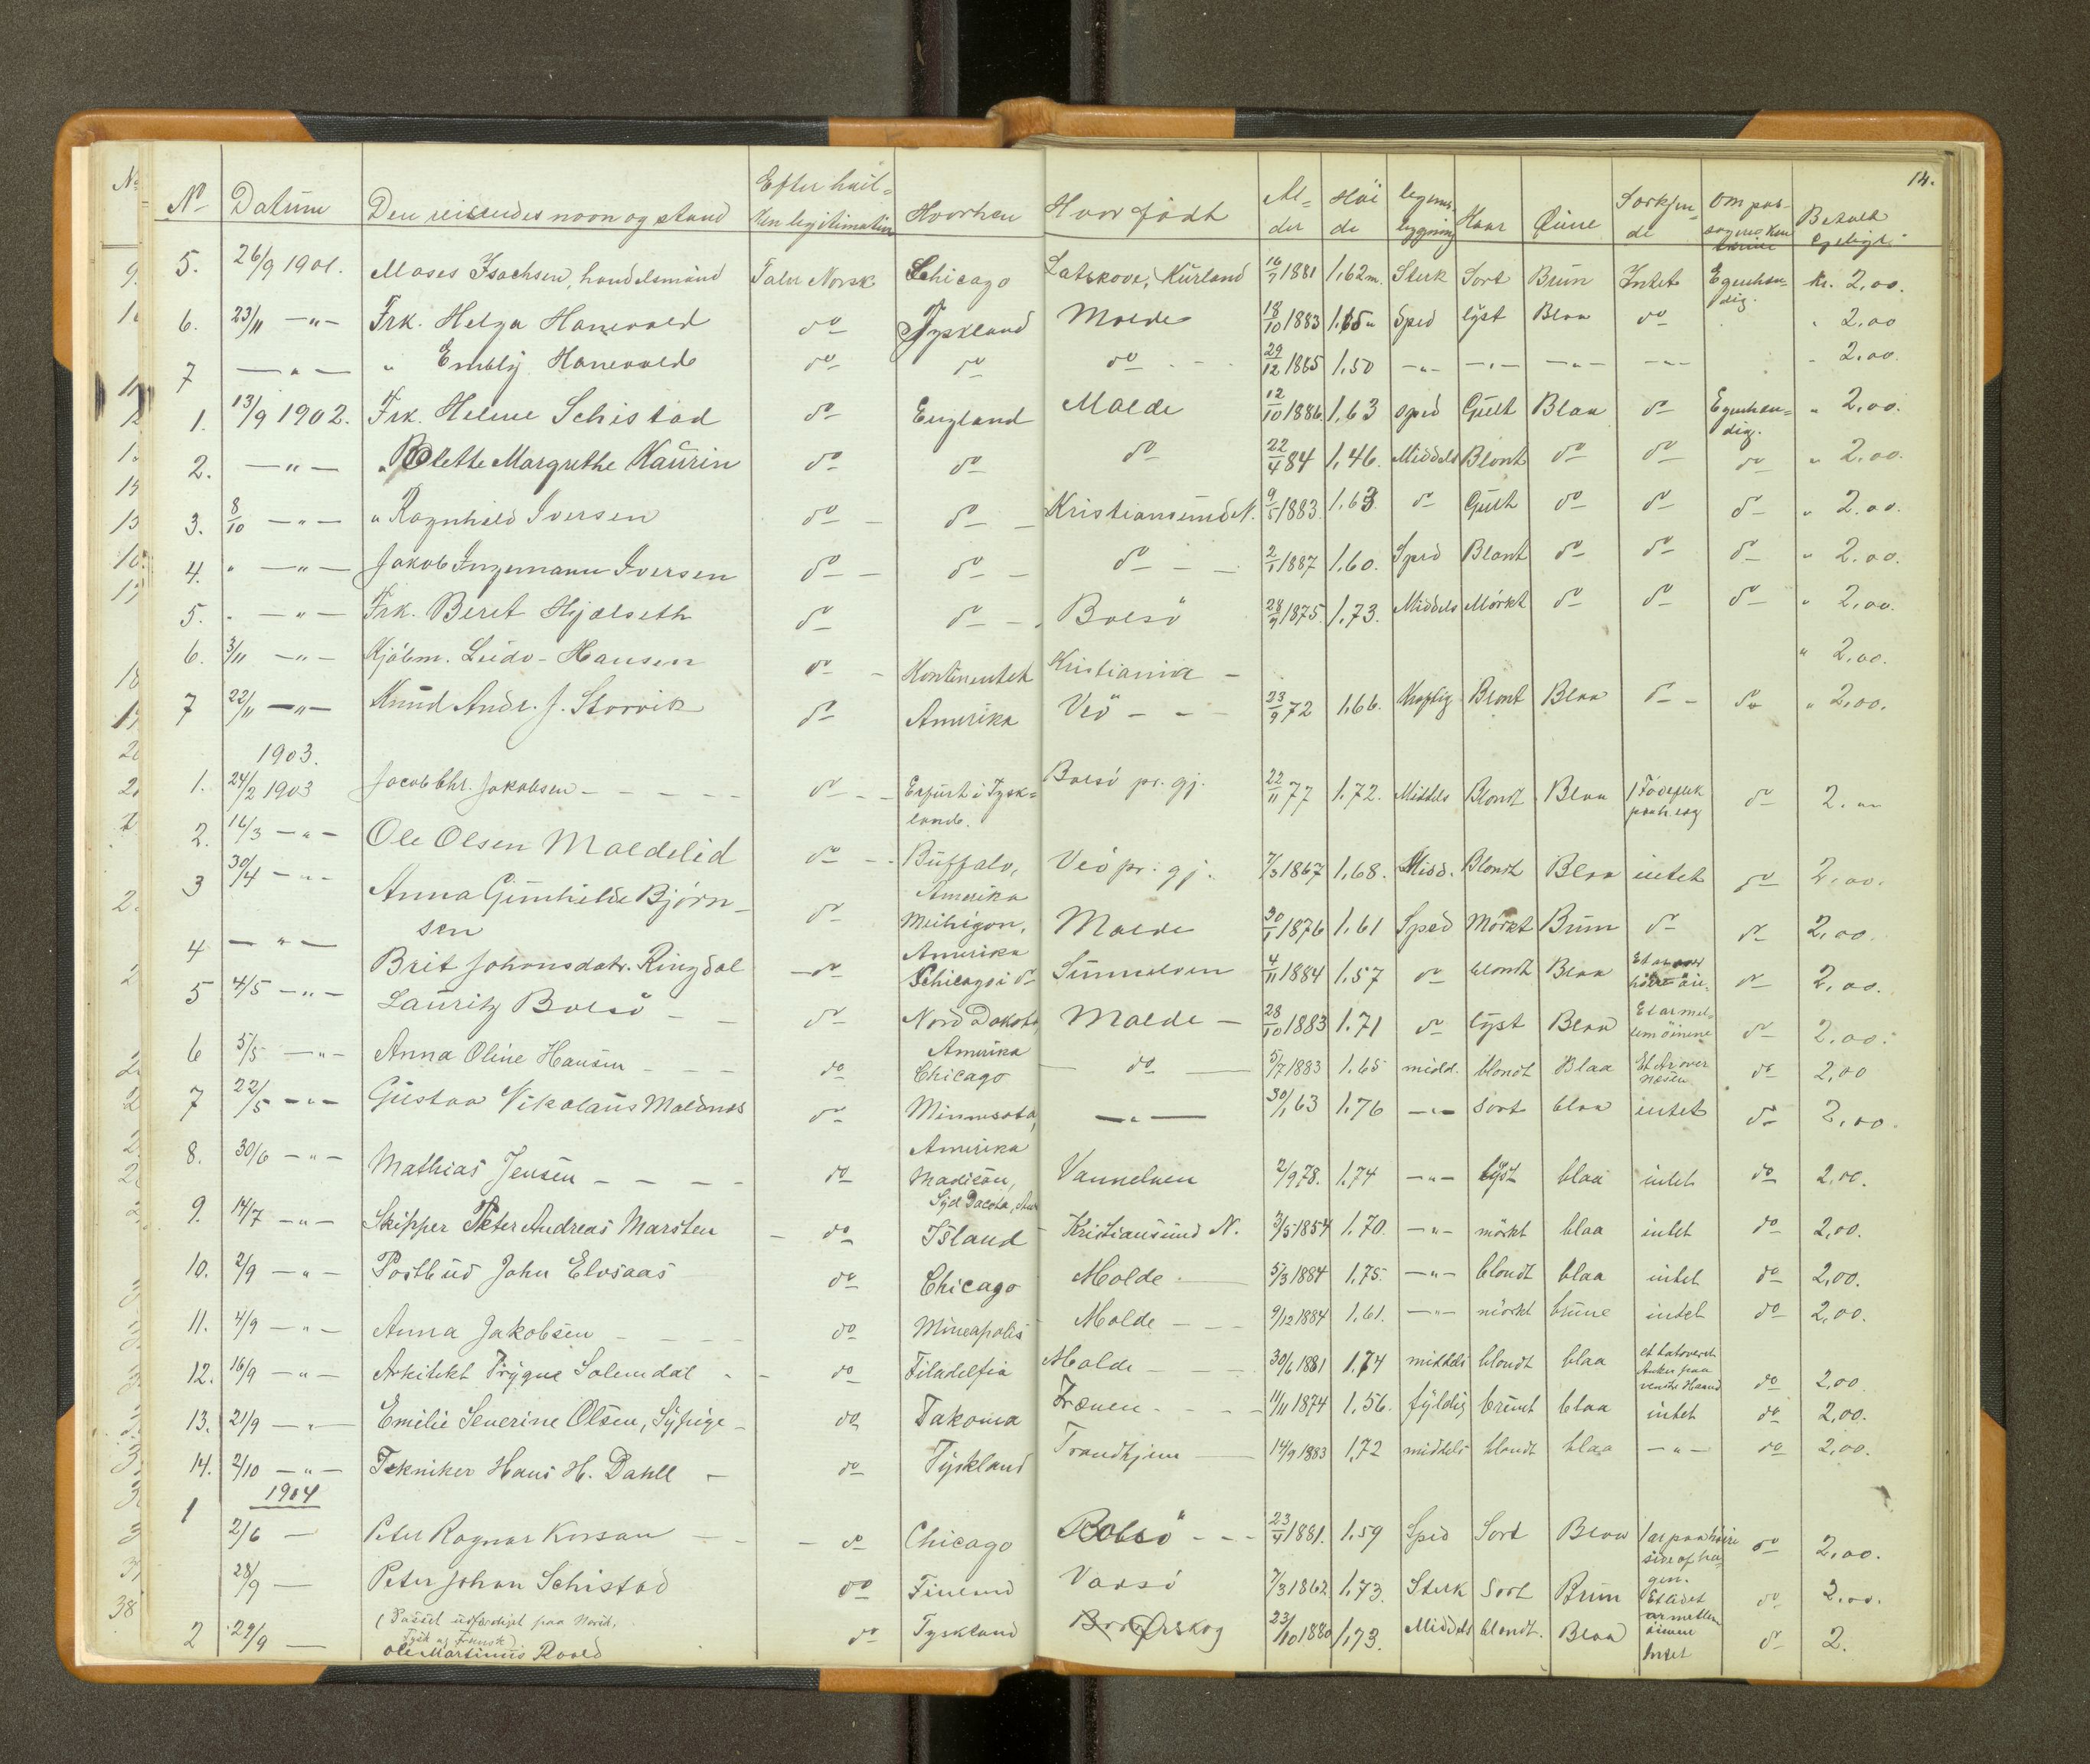 14.
No Datum Den reisendes navn og stand Efter hvil-ken legitimation Hvorhen Hvor født Al-der Höi-de legems-bygning Haar Öine Særkjen-de Om pas- Betalt
5. 26/9 1901. Moses Isachsen, handelsmand Taler Norsk Chicago Latskove, Kurland 16/7 1881 1,62 m. Sterk Sort Brun Intet Egenhæn-dig. kr. 2,00.
6. 23/11 —"— Frk. Helga Hanevold do Tyskland Molde 18/10 1883 1,65 " Sped lyst Blaa do " 2,00
7 —"— " Embly Hanevold do do do 29/12 1885 1,50 —"— —"— —"— —"— - 2,00.
1. 13/9 1902. Frk. Helene Schistad do England Molde 12/10 1886. 1,63 sped Gult Blaa do Egenhæn-dig. " 2,00.
2. —"— " Bolette Margrethe Kaurin do do do 22/4 84 1,46. Middels Blont do do do " 2.00.
3. 8/10 —"— " Ragnhild Iversen do do Kristiansund N. 9/5 1883. 1,63. do Gult do do do " 2.00.
4. " —"— Jakob Ingemann Iversen do do do 2/1 1887 1,60. Sped Blont do do do " 2.00.
5. " —"— Frk. Beret Hjælseth do do Bolsö 28/9 1875. 1,73. Middels Mörkt do do do " 2,00.
6. 3/11 —"— Kjöbm. Ludv. Hansen do Kontinentet Kristiania " 2,00.
7 22/11 —"— Knud Andr. J. Storvik do Amerika Veö 23/9 72 1,66. Kraftig Blont Blaa do do " 2,00.
1903.
1. 24/2 1903 Jacob Chr. Jakobsen do Erfurt i Tysk-land. Bolsö pr. gj. 22/11 77 1,72. Middels Blondt Blaa 1 Födeflek paa h. læg do 2.
2. 16/3 —"— Ole Olsen Moldelid do Buffalo, Amerika Veö pr. gj. 7/3 1867 1,68. Midd. Blondt Blaa intet do 2,00.
3 30/4 —"— Anna Gunhilde Bjørn-sen do Meihigon, Amerika Molde 30/1 1876 1,61 Sped Mörkt Brun do do 2,00.
4 —"— Brit Johansdatr. Ringdal do Chicago i do Sunnelven 4/11 1884 1,57 do blondt Blaa Et ar over höire öie do 2,00.
5 4/5 —"— Lauritz Bolsö do Nord Dakota, Amerika Molde 28/10 1883 1.71 do lyst Blaa Et ar mel-lem öinene do 2,00.
6 5/5 —"— Anna Oline Hansen do Chicago do 5/7 1883 1.65 midd. blondt Blaa Et Ar over næsen do 2,00
7 22/5 —"— Gustav Nikolaus Moldnes do Minnesota, Amerika —"— 30/1 63 1,76 —"— sort blaa intet do 2,00.
8. 30/6 —"— Mathias Jensen do Madison, Syd Dacota, Am Vannelven 2/9 78. 1,74 —"— lyst blaa intet do 2,00.
9. 14/7 —"— Skipper Peter Andreas Marsten do Island Kristiansund N. 3/5 1854 1,70. —"— mörkt blaa intet do 2,00.
10. 2/9 —"— Postbud John Elvsaas do Chicago Molde 5/3 1884 1,75. —"— blondt blaa intet do 2,00.
11. 4/9 —"— Anna Jakobsen do Mineapolis Molde 9/12 1884 1,61. —"— mörkt brune intet do 2,00.
12. 16/9 —"— Arkitekt Trygve Solemdal do Filadelfia Molde 30/6 1881 1,74 middels blondt blaa et tatoveret Anker paa venstre Haand do 2,00
13. 21/9 —"— Emilie Severine Olsen, Sypige do Takoma Frænen 11/11 1874 1,56. fyldig brunt blaa intet do 2,00.
14. 2/10 —"— Tekniker Hans H. Dahll do Tyskland Trondhjem 14/9 1883 1,72 middels blondt blaa —"— do 2,00.
1904
1 2/6 — Peter Ragnar Korsan do Chicago Bolsö 23/4 1881. 1,59 Sped Sort Blaa 1 ar paa höire side af ha-gen. do 2,00.
28/9 — Peter Johan Schistad do Finland Vaagsö 7/3 1862 1,73. Sterk Sort Brun Et lidet ar mellem öinene do 2,00.
(Passet udfærdiget paa Norsk, Tysk og Fransk)
2 29/9 — Ole Martinus Roald do Tyskland Ørskog 23/10 1880 1,73. Middels blondt. Blaa Intet do 2.
38